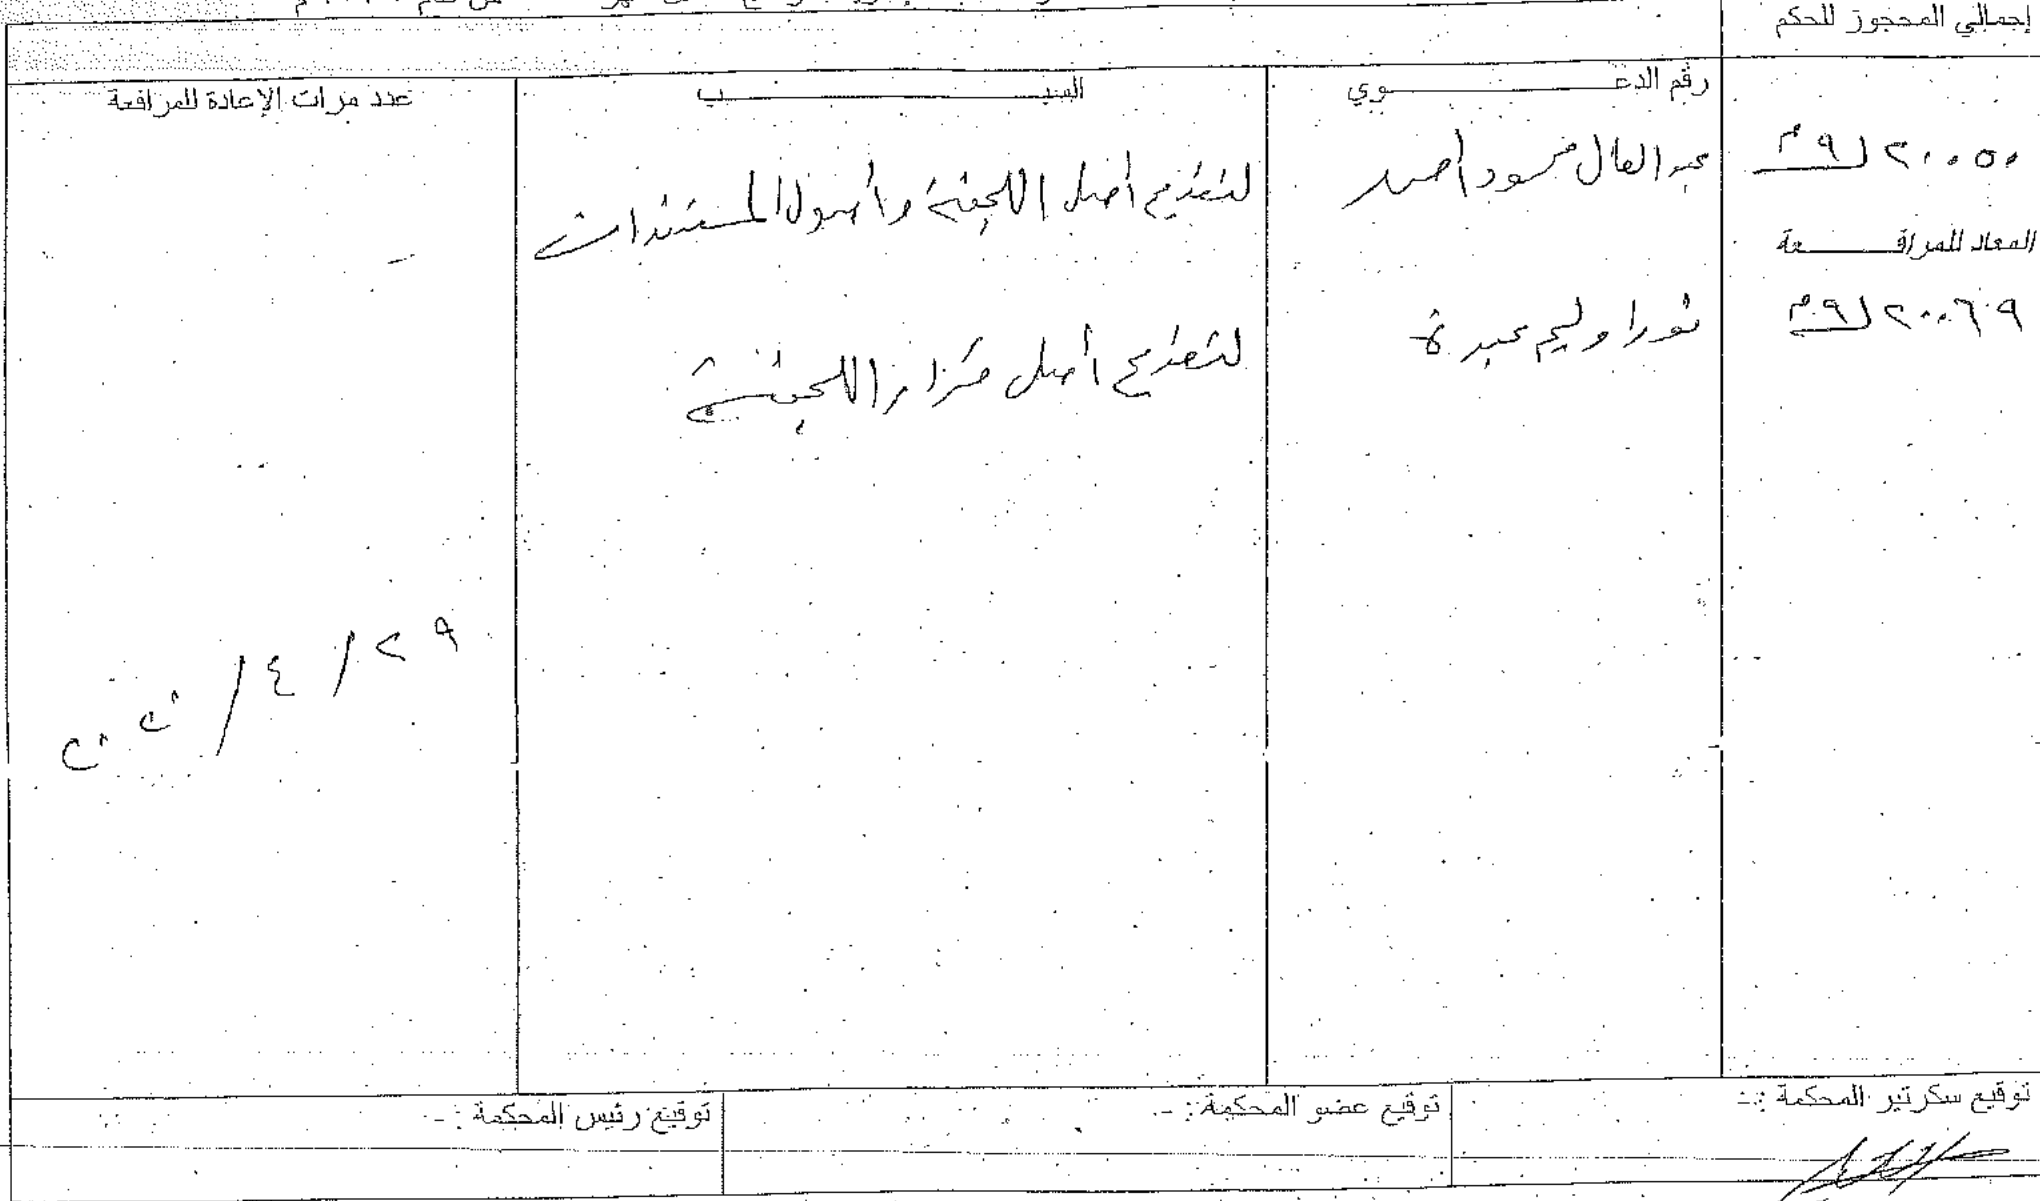 إجمالي المحجوز للحكم
رقم الدعوي
السبب
عدد مرات الإعادة للمرافعة
٢٠٠٥٠ ل ٩ م
عبد العال مسعود أحمد
لتقديم أصل اللجنة وأصول المستندات
-
المعاد للمرافعة
٢٠٠٦٩ ل ٩ م
نورا وليم عبده
لتقديم أصل قرار اللجنة
٢٩ / ٤ / ٢٠٢٠
توقيع سكرتير المحكمة :-
توقيع عضو المحكمة :-
توقيع رئيس المحكمة :-